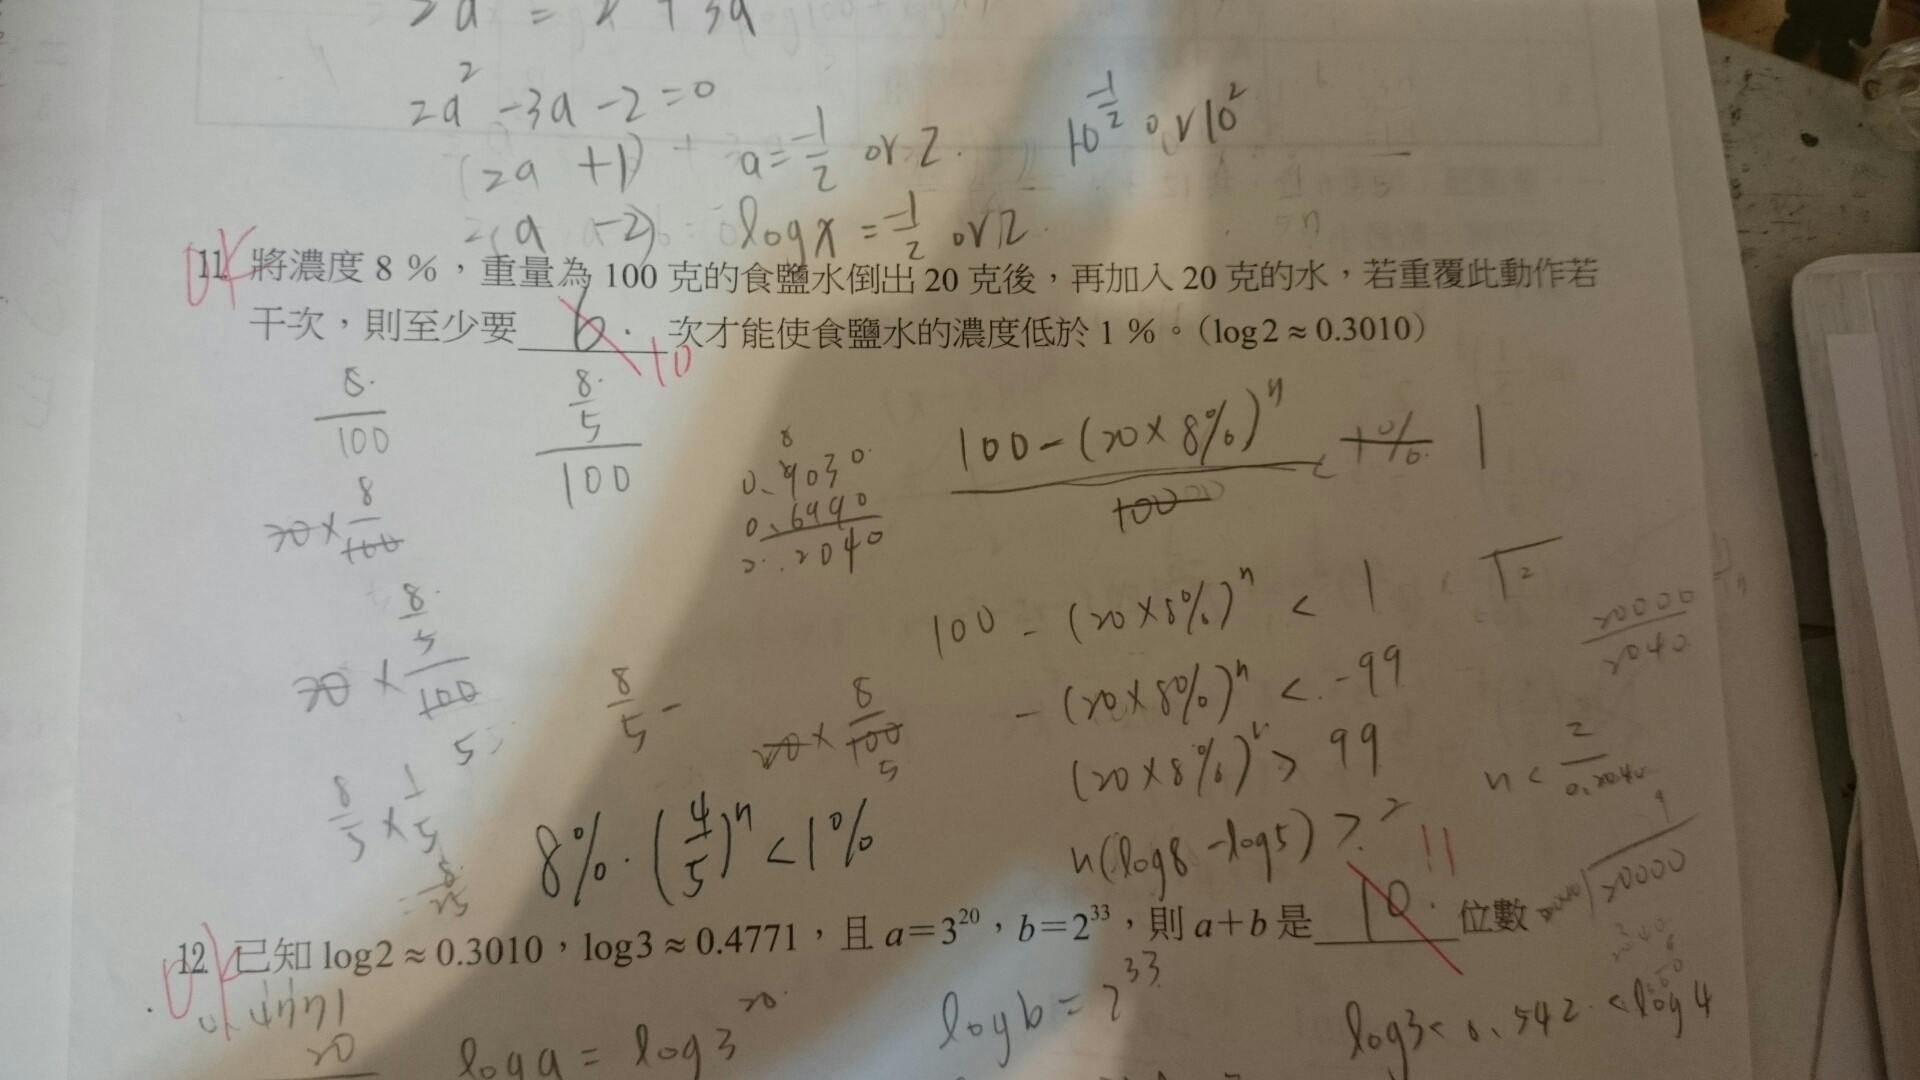 2a² -3a -2 = 0
(2a +1)
a = -1/2 or 2.
10^(-1/2) or 10²
(a -2)
log x = -1/2 or 2.
11. 將濃度 8 %，重量為 100 克的食鹽水倒出 20 克後，再加入 20 克的水，若重覆此動作若
干次，則至少要 6. 次才能使食鹽水的濃度低於 1 %。（log2 ≈ 0.3010）
10
8/100
8/5 / 100
0.9030
0.6990
.2040
100 - (20×8%)ⁿ / 100 < 1% 1
20 × 8/100
100 - (20×8%)ⁿ < 1
20000/2040
20 × 8/5 / 100
8/5 -
20 × 8/100
5
-(20×8%)ⁿ < -99
(20×8%)ⁿ > 99
n < 2/0.2040
8/5 × 1/5
= 8/25
8% · (4/5)ⁿ < 1%
n(log8 - log5) > 2
11
20000
12. 已知 log2 ≈ 0.3010，log3 ≈ 0.4771，且 a=3²⁰，b=2³³，則 a+b 是 10. 位數
0.4771
20
log a = log 3²⁰
log b = 2³³
log3 < 0.542 < log4